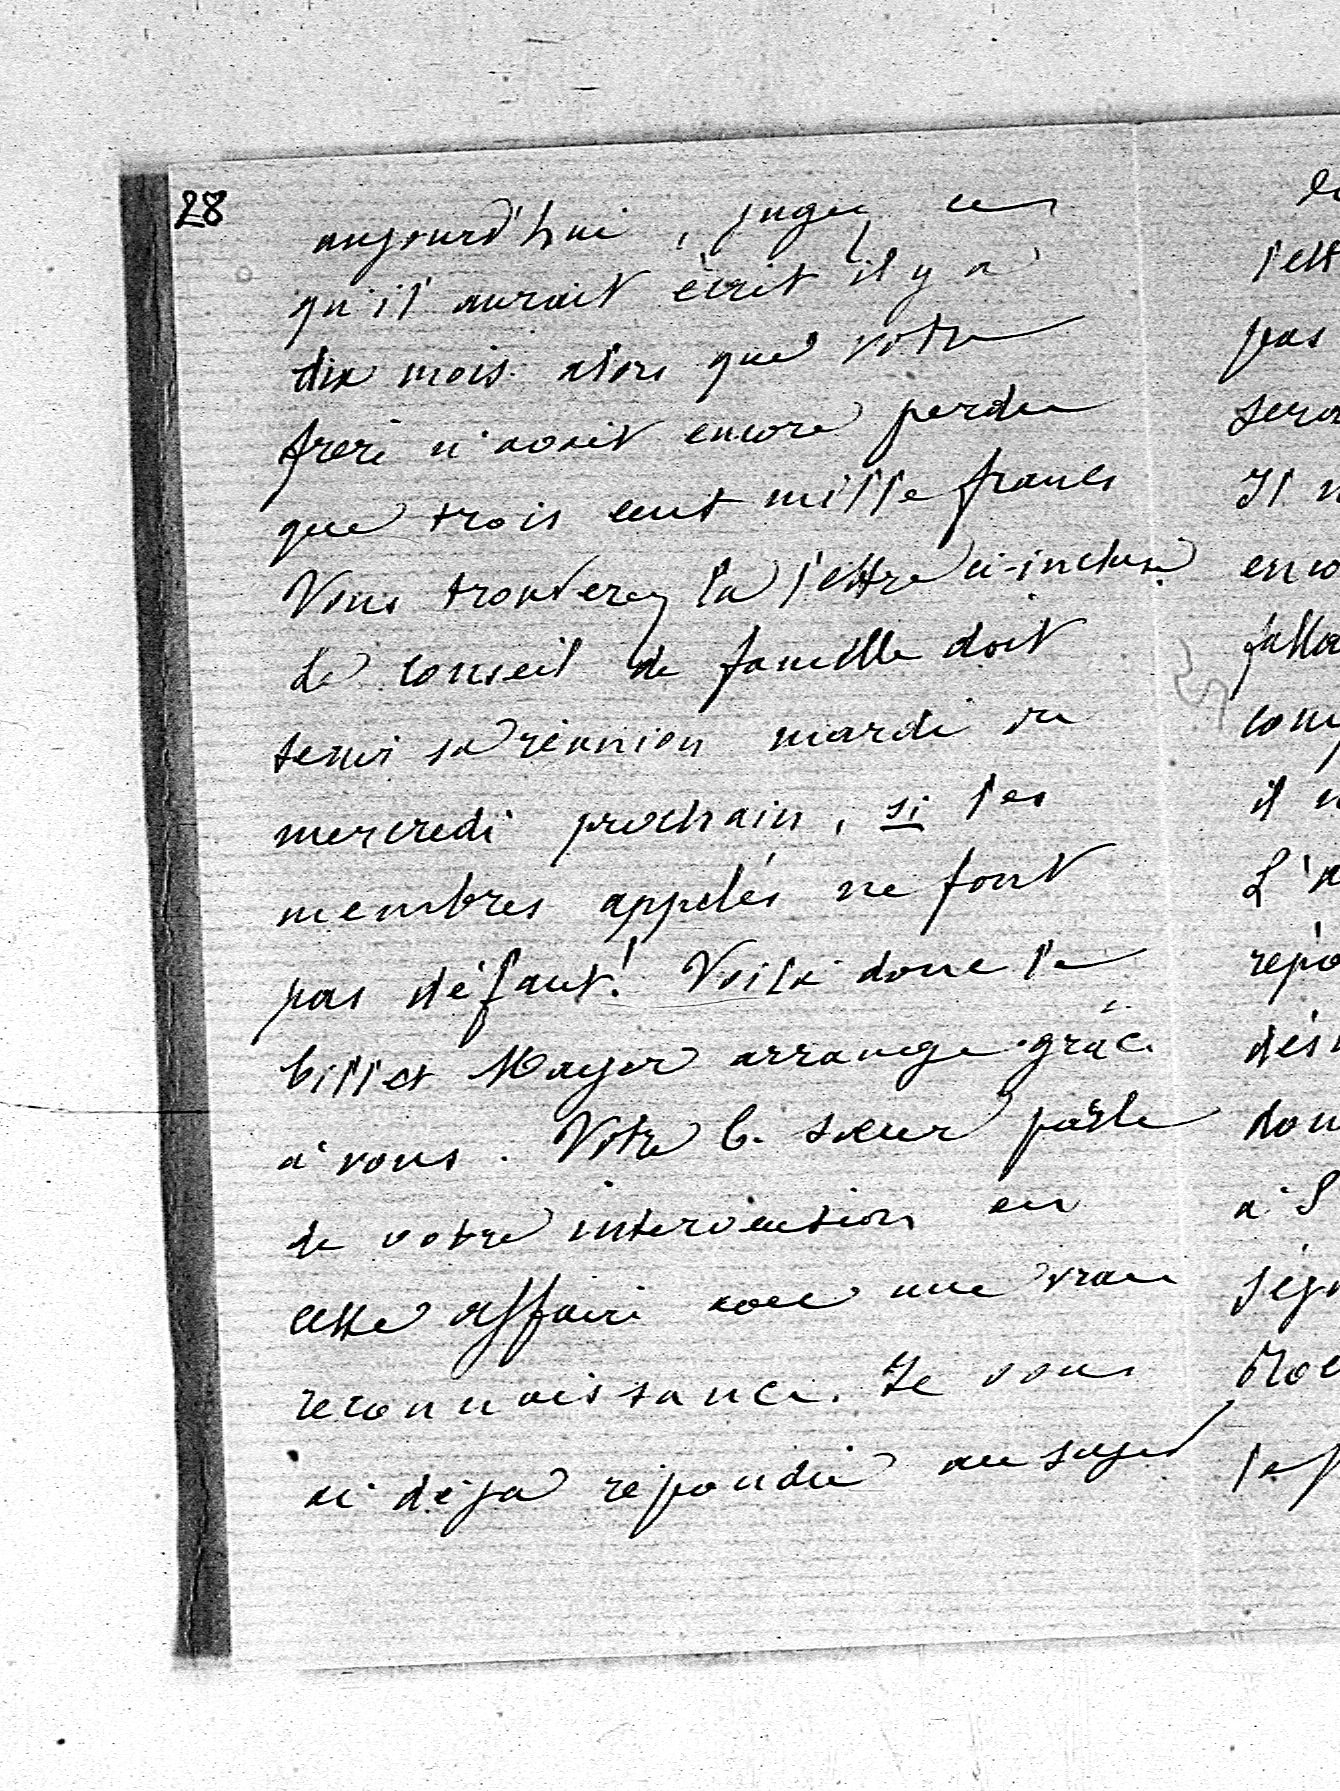 28
aujourd'hui, jugez ce
qu'il aurait écrit il y a
dix mois alors que votre
frère n'avait encore perdu
que trois cent mille francs
Vous trouverez la lettre ci-incluse.
Le conseil de famille doit
tenir sa réunion mardi ou
mercredi prochain, si les
membres appelés ne font
pas défaut! Voilà donc le
billet Mayer arrangé grâce
à vous. Votre b. sœur parle
de votre intervention en
cette affaire avec une vraie
reconnaissance. Je vous
ai déjà répondu au sujet
lett
pas
sera
Il n
enco
falla
com
il n
L'a
répo
dés
don
à S